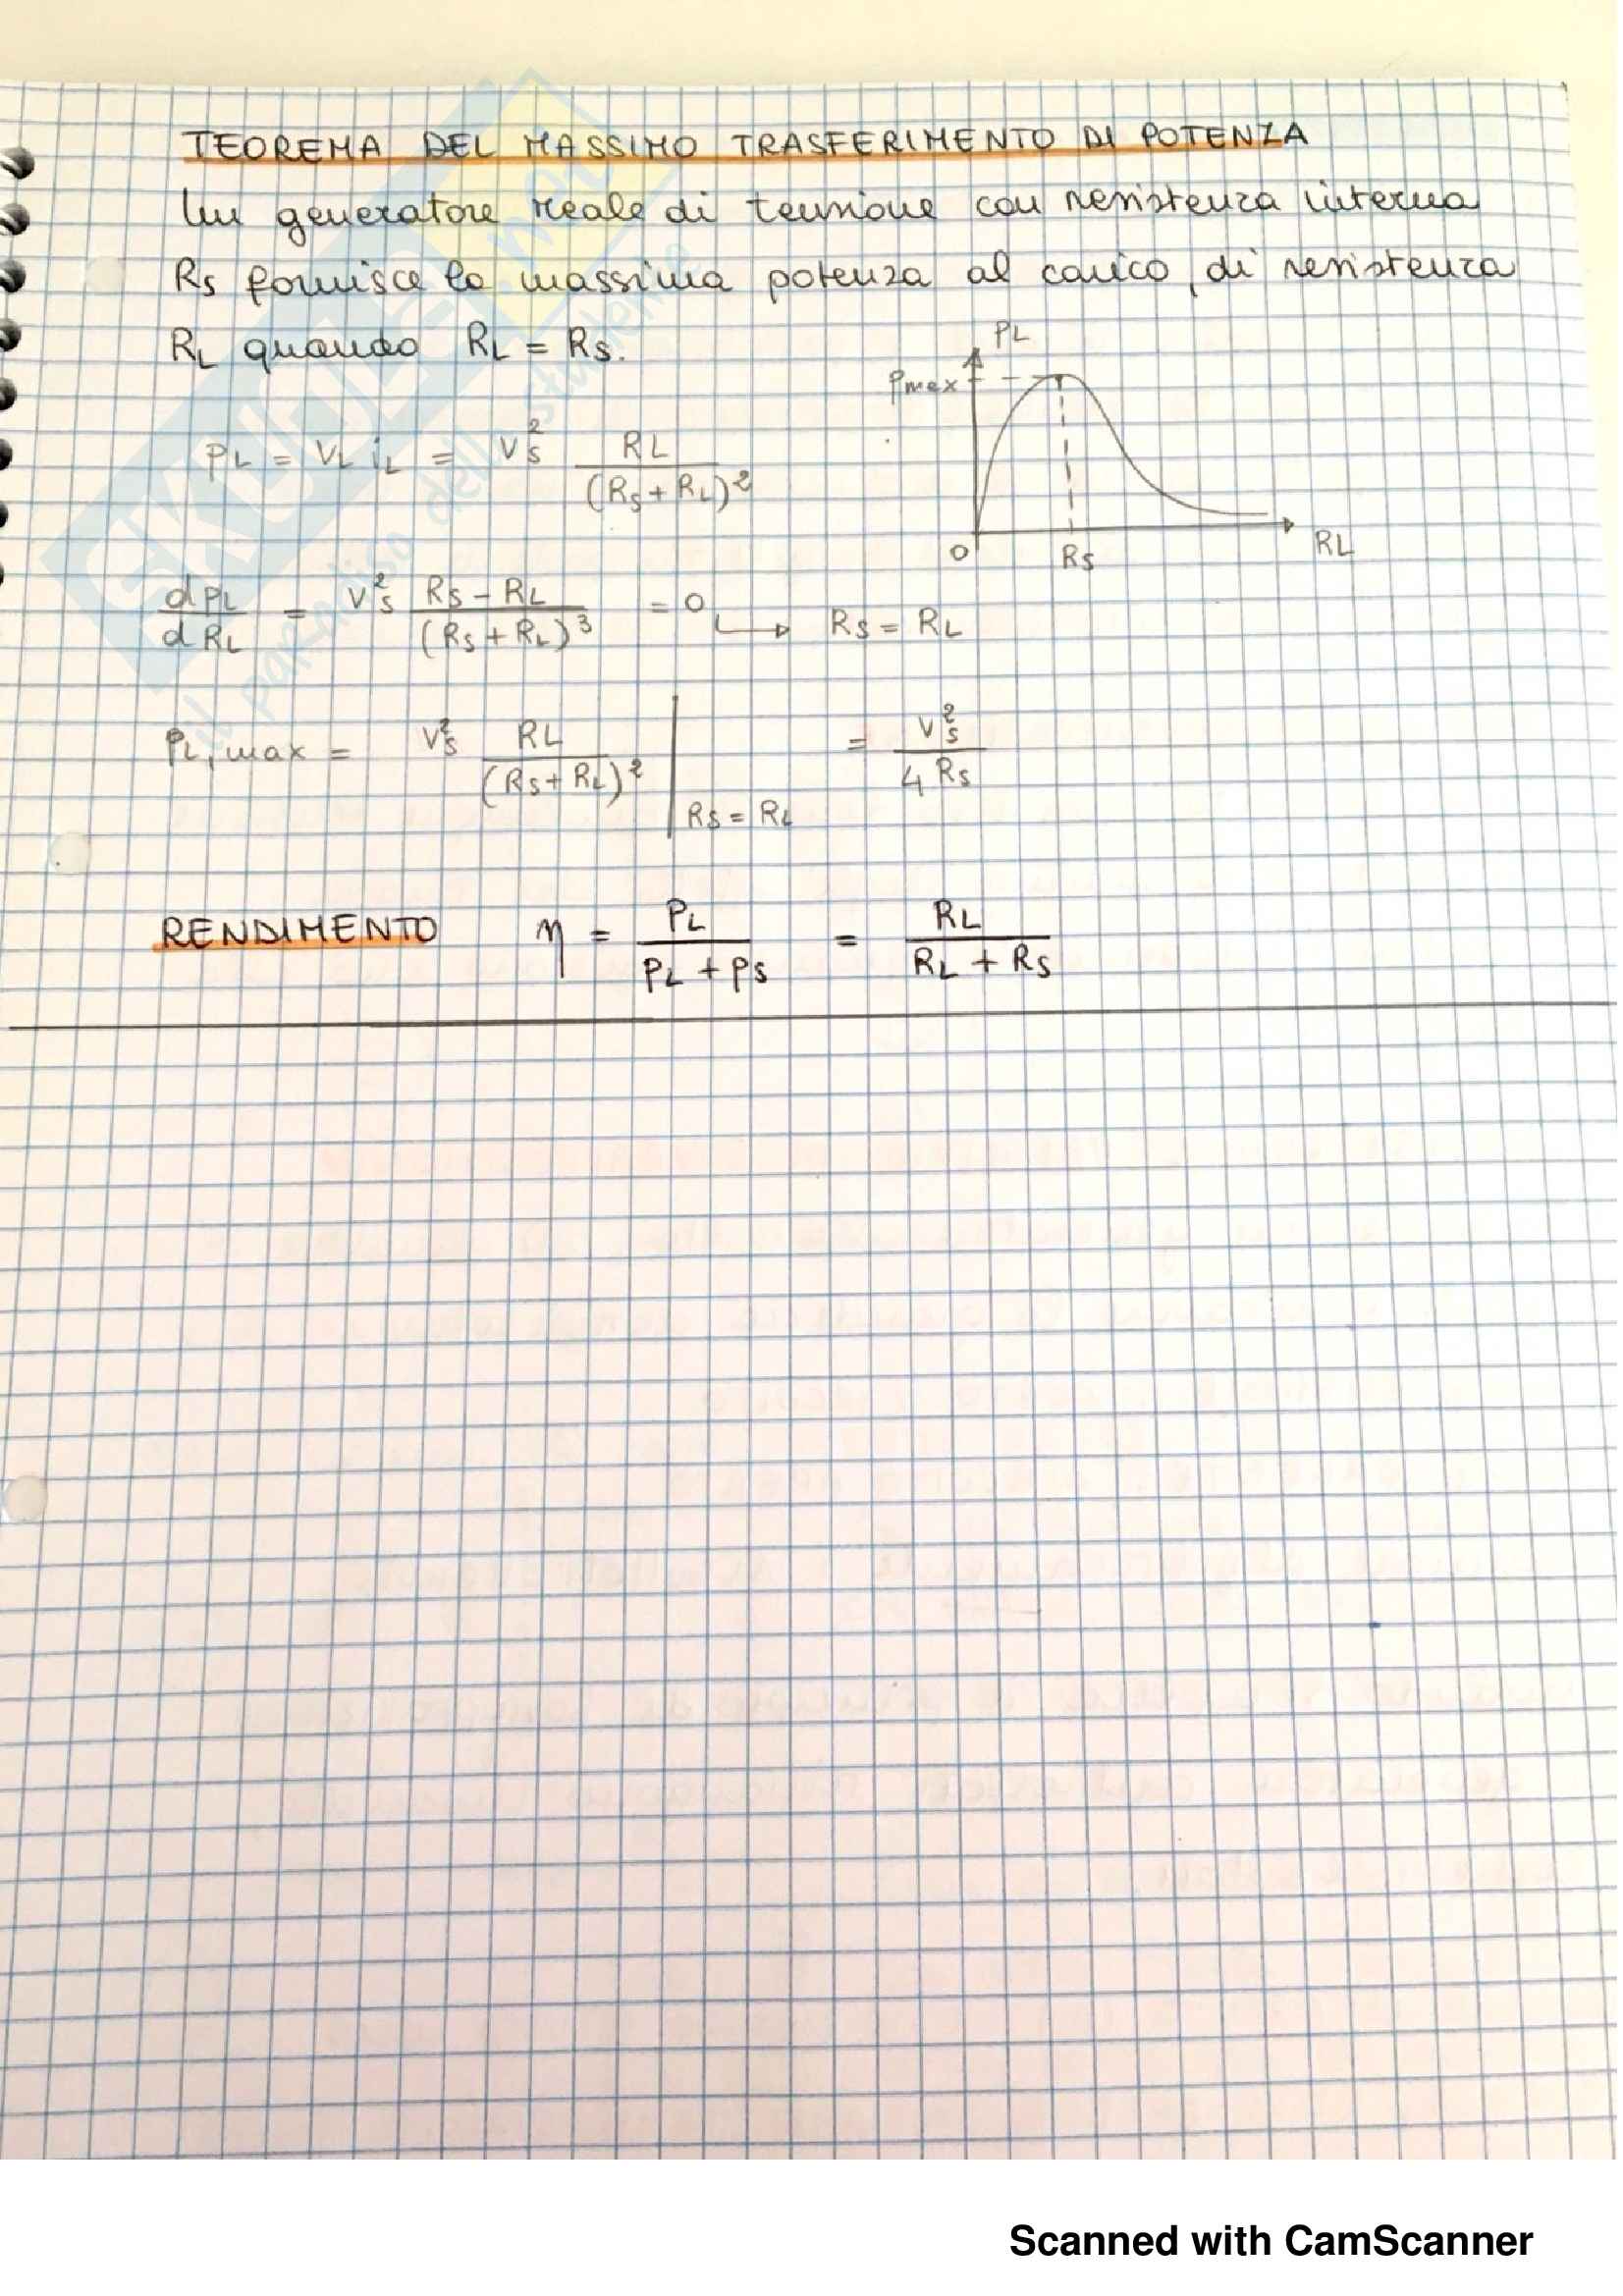 TEOREMA DEL MASSIMO TRASFERIMENTO DI POTENZA
Un generatore reale di tensione con resistenza interna
Rs fornisce la massima potenza al carico, di resistenza
RL quando RL = Rs.
PL
Pmax
0
Rs
RL
PL = VL iL = Vs² RL / (Rs + RL)²
dPL / dRL = Vs² (Rs - RL) / (Rs + RL)³ = 0 → Rs = RL
PL, max = Vs² RL / (Rs + RL)² | Rs = RL = Vs² / 4 Rs
RENDIMENTO η = PL / (PL + Ps) = RL / (RL + Rs)
SKUOLA.net
il paradiso dello studente
Scanned with CamScanner